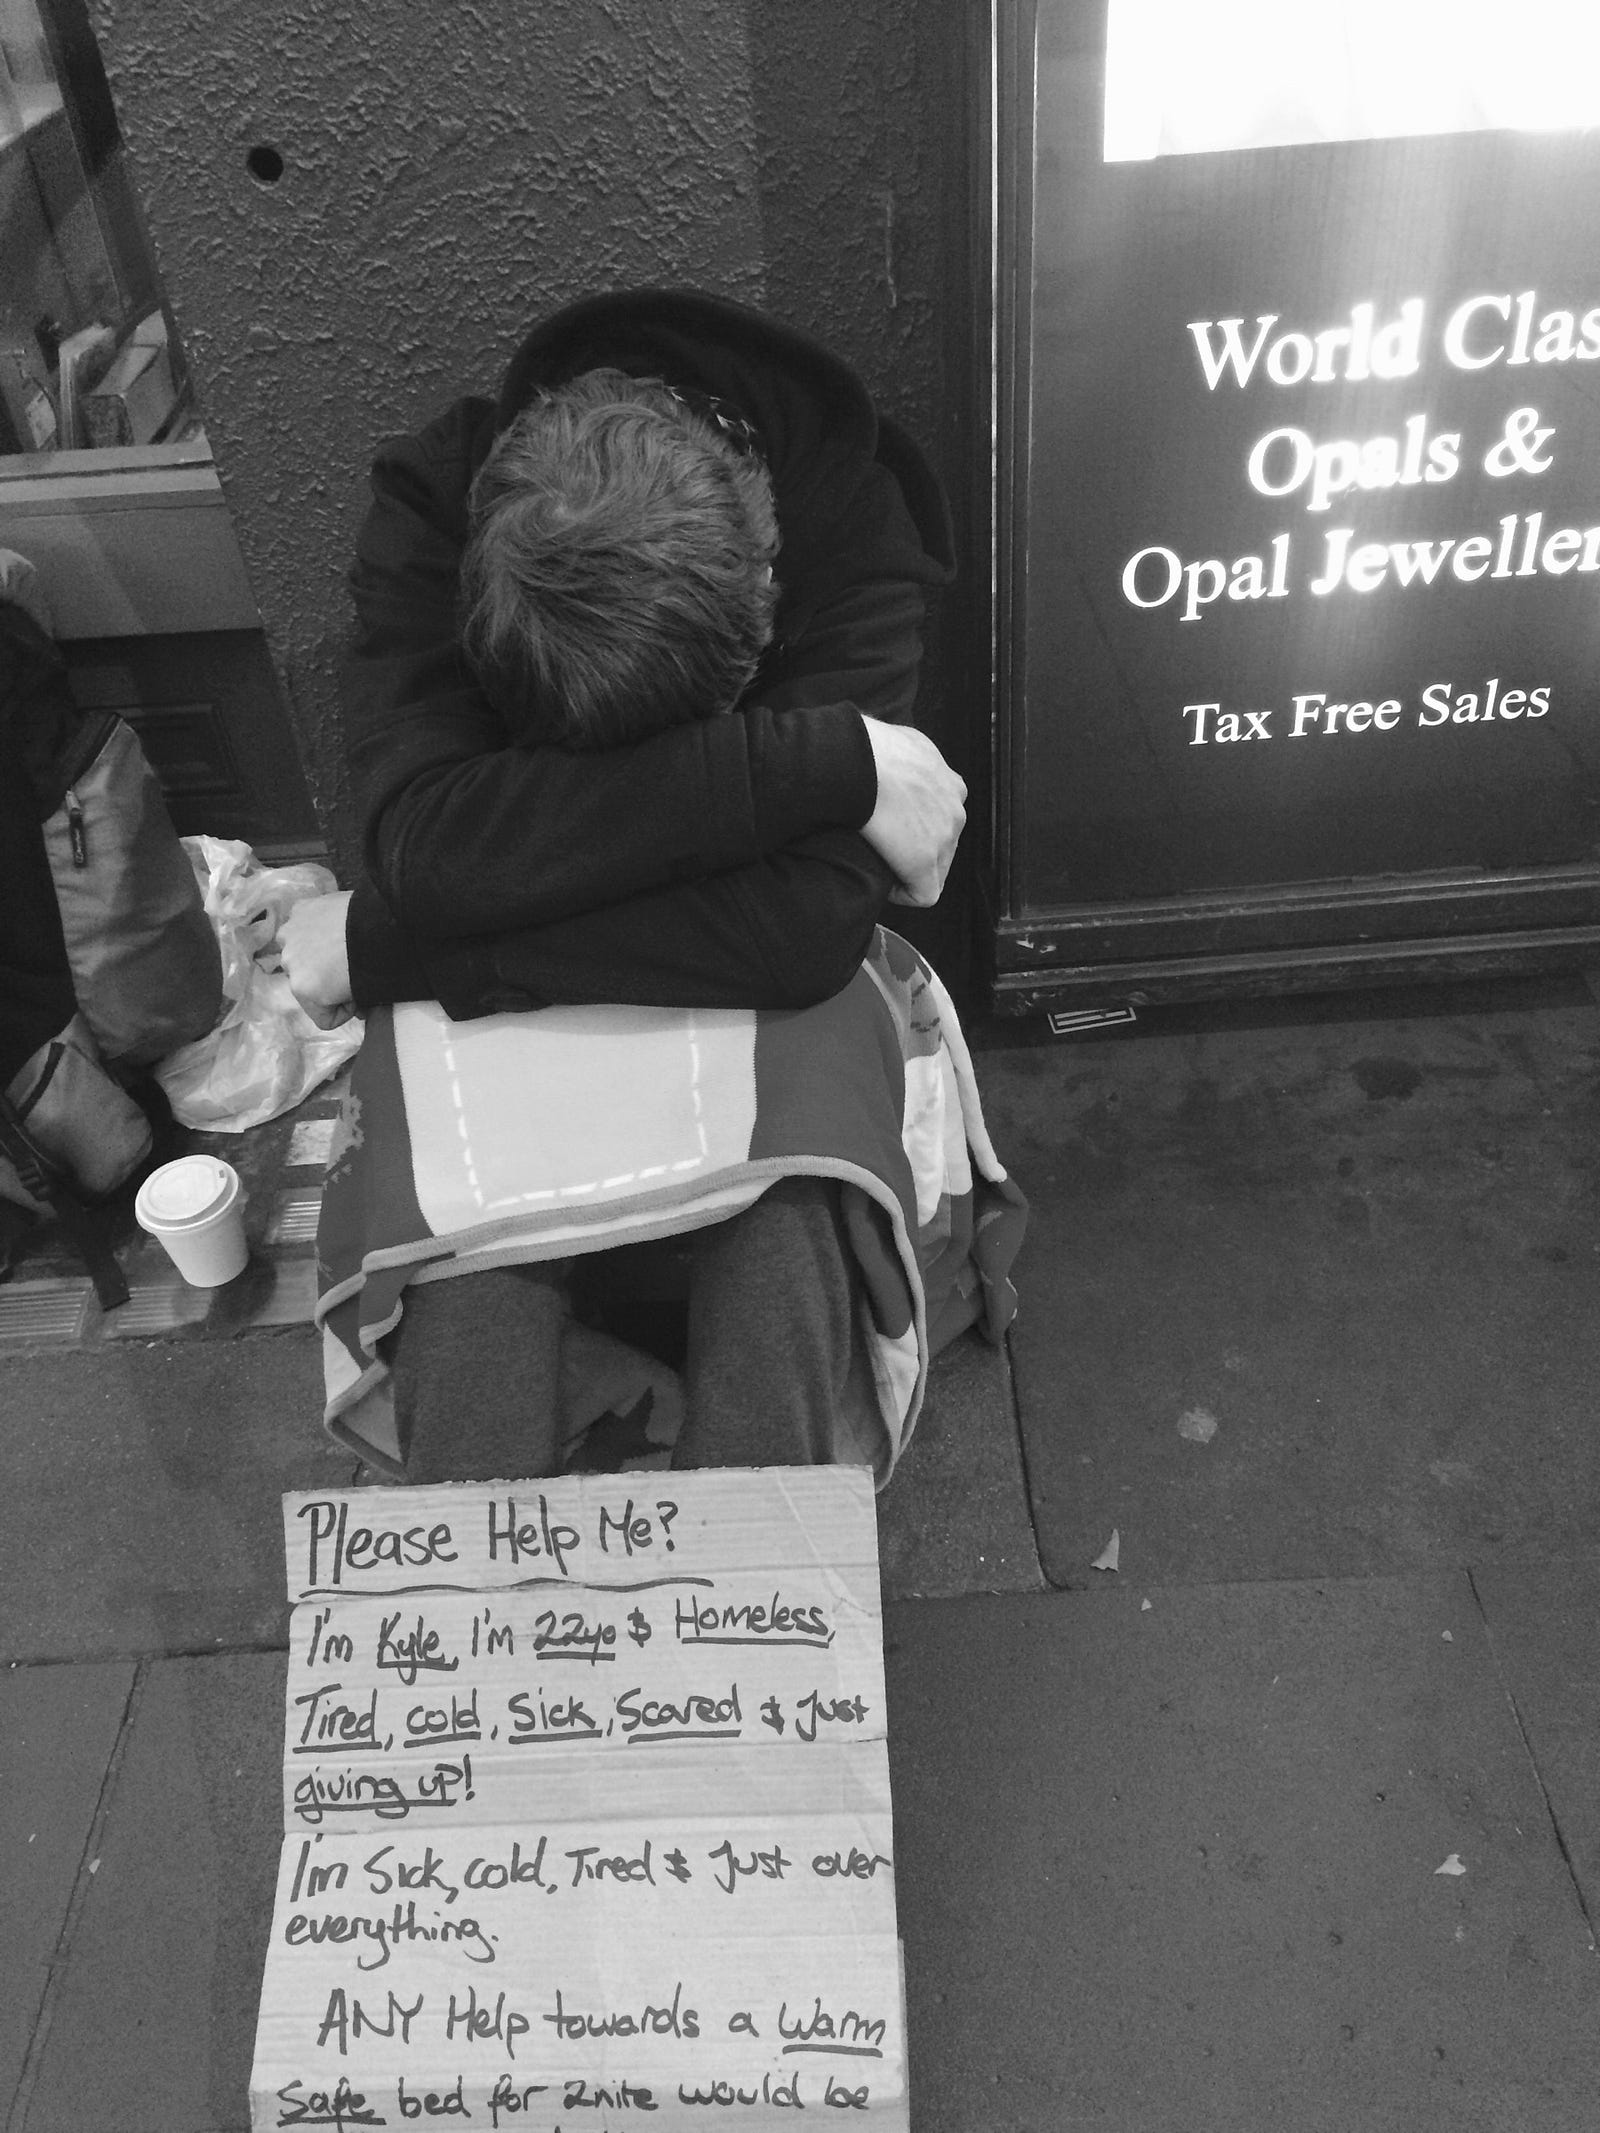 World Clas
Opals &
Opal Jeweller
Tax Free Sales
Please Help Me?
I'm Kyle, I'm 22yo & Homeless,
Tired, cold, Sick, Scared & Just
giving up!
I'm Sick, cold, Tired & Just over
everything.
ANY Help towards a Warm
Safe bed for 2nite would be